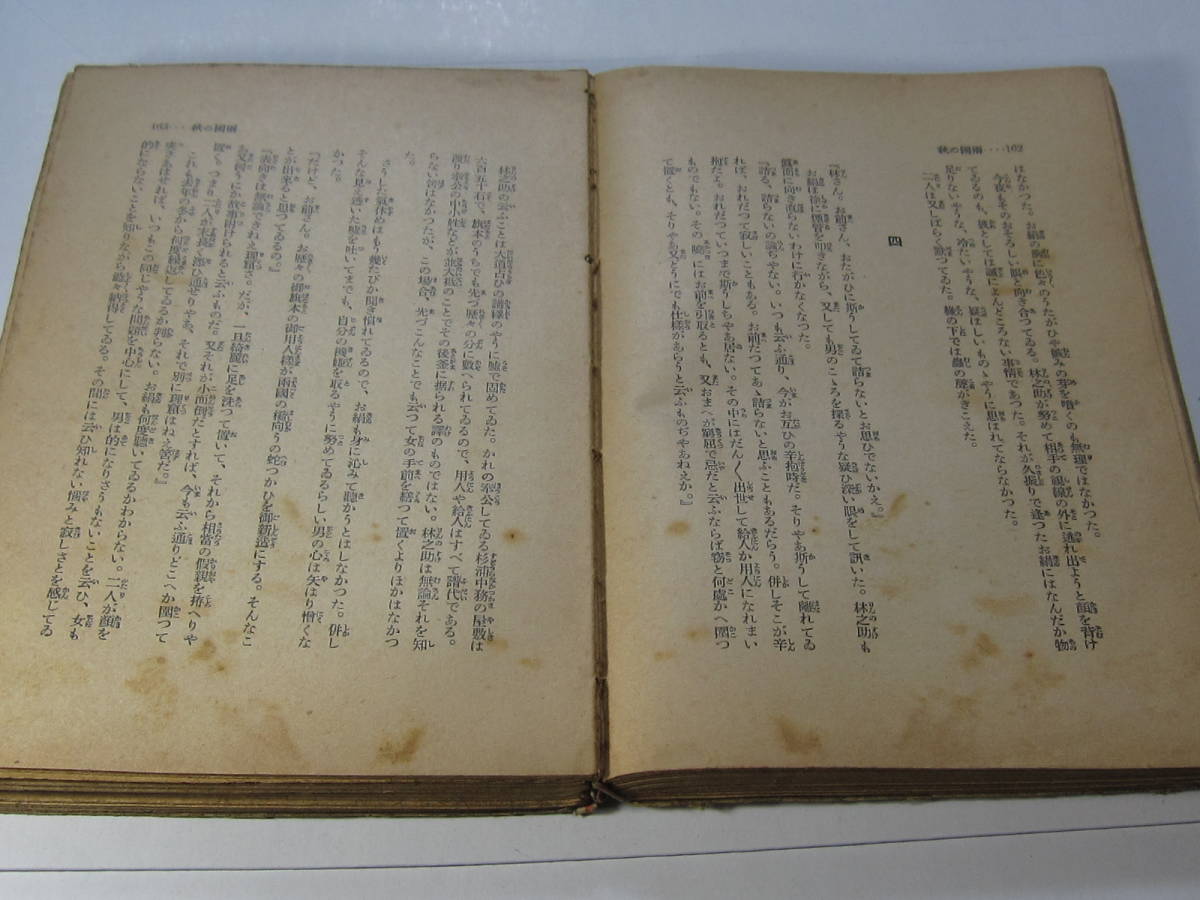 102・・・・秋の國兩
はなかつた。お絹の胸に色々のうたがひや妬みの芽を噴くのも無理ではなかつた。
今夜もそのおそろしい眼と向き合つてゐる。林之助が努めて相手の視線の外に逃れ出ようと顏を背け
てゐるのも、彼としては誠によんどころない事情であつた。それが久振りで逢つたお絹にはなんだか物
足りないやうな、冷たいやうな、疑はしいものゝやうに思はれてならなかつた。
二人は又しばらく默つてゐた。橡の下では蟲の聲がきこえた。
四
『林さん。お前さん、おたがひに斯うしてゐて詰らないとお思ひでないかえ。』
お絹は徐に煙管を叩きながら、又しても男のこゝろを探るやうな疑ひ深い眼をして訊いた。林之助も
眞面に向き直らないわけに行かなくなつた。
『詰る、詰らないの論ぢやない。いつも云ふ通り、今がお互ひの辛抱時だ。そりやあ斯うして離れてゐ
れば、おれだつて寂しいこともある。お前だつてあゝ詰らないと思ふこともあるだらう。併しそこが辛
抱だよ。おれだつていつまで斯うしちやあ居ない。その中にはだん〱出世して給人か用人になれまい
ものでもない。その曉にはお前を引取るとも、又おまへが窮屈で忌だと云ふならば窃と何處かへ圍つ
て置くとも、そりやあ又どうにでも仕樣があらうと云ふものぢやあねえか。』
103・・・秋の國兩
林之助の云ふことは大道占ひの講釋のやうに嘘で固めてゐた。かれの奉公してゐる杉浦中務の屋敷は
六百五十石で、旗本のうちでも先づ歷々の分に數へられてゐるので、用人や給人はすべて譜代である。
渡り奉公の中小姓などが並大抵のことでその後釜に据られる譯のものではない。林之助は無論それを知
らない筈はなかつたが、この場合、先づこんなことでも云つて女の手前を繕つて置くよりほかはなかつ
た。
さうした氣休めはもう幾たびか聞き慣れてゐるので、お絹も身に沁みて聽かうとはしなかつた。併し
そんな見え透いた嘘を吐いてまでも、自分の機嫌を取るやうに努めてゐるらしい男の心は矢はり憎くな
かつた。
『だけど、お前さん。お歷々の御旗本の御用人樣が兩國の橋向うの蛇つかひを御新造にする。そんなこ
とが出來ると思つてゐるの。』
『表向きは無論できねえ理窟だ。だが、一旦綺麗に足を洗つて置いて、それから相當の假親を拵へりや
あ又何うにか故事附けられると云ふものだ。又それが小面倒だとすれば、今も云ふ通りどこへか圍つて
置く。つまり二人が末長く添ひ通せりやあ、それで別に理窟はねえ筈だ。』
これも去年の冬から何度繰返してゐるか判らない。お絹も何度聽いてゐるかわからない。二人が顏を
突きあはせれば、いつもこの同じやうな問題を中心にして、男は的になりさうもないことを云ひ、女も
的にならないことを知りながら納得してゐる。その間には云ひ知れない惱みと寂しさとを感じてゐ